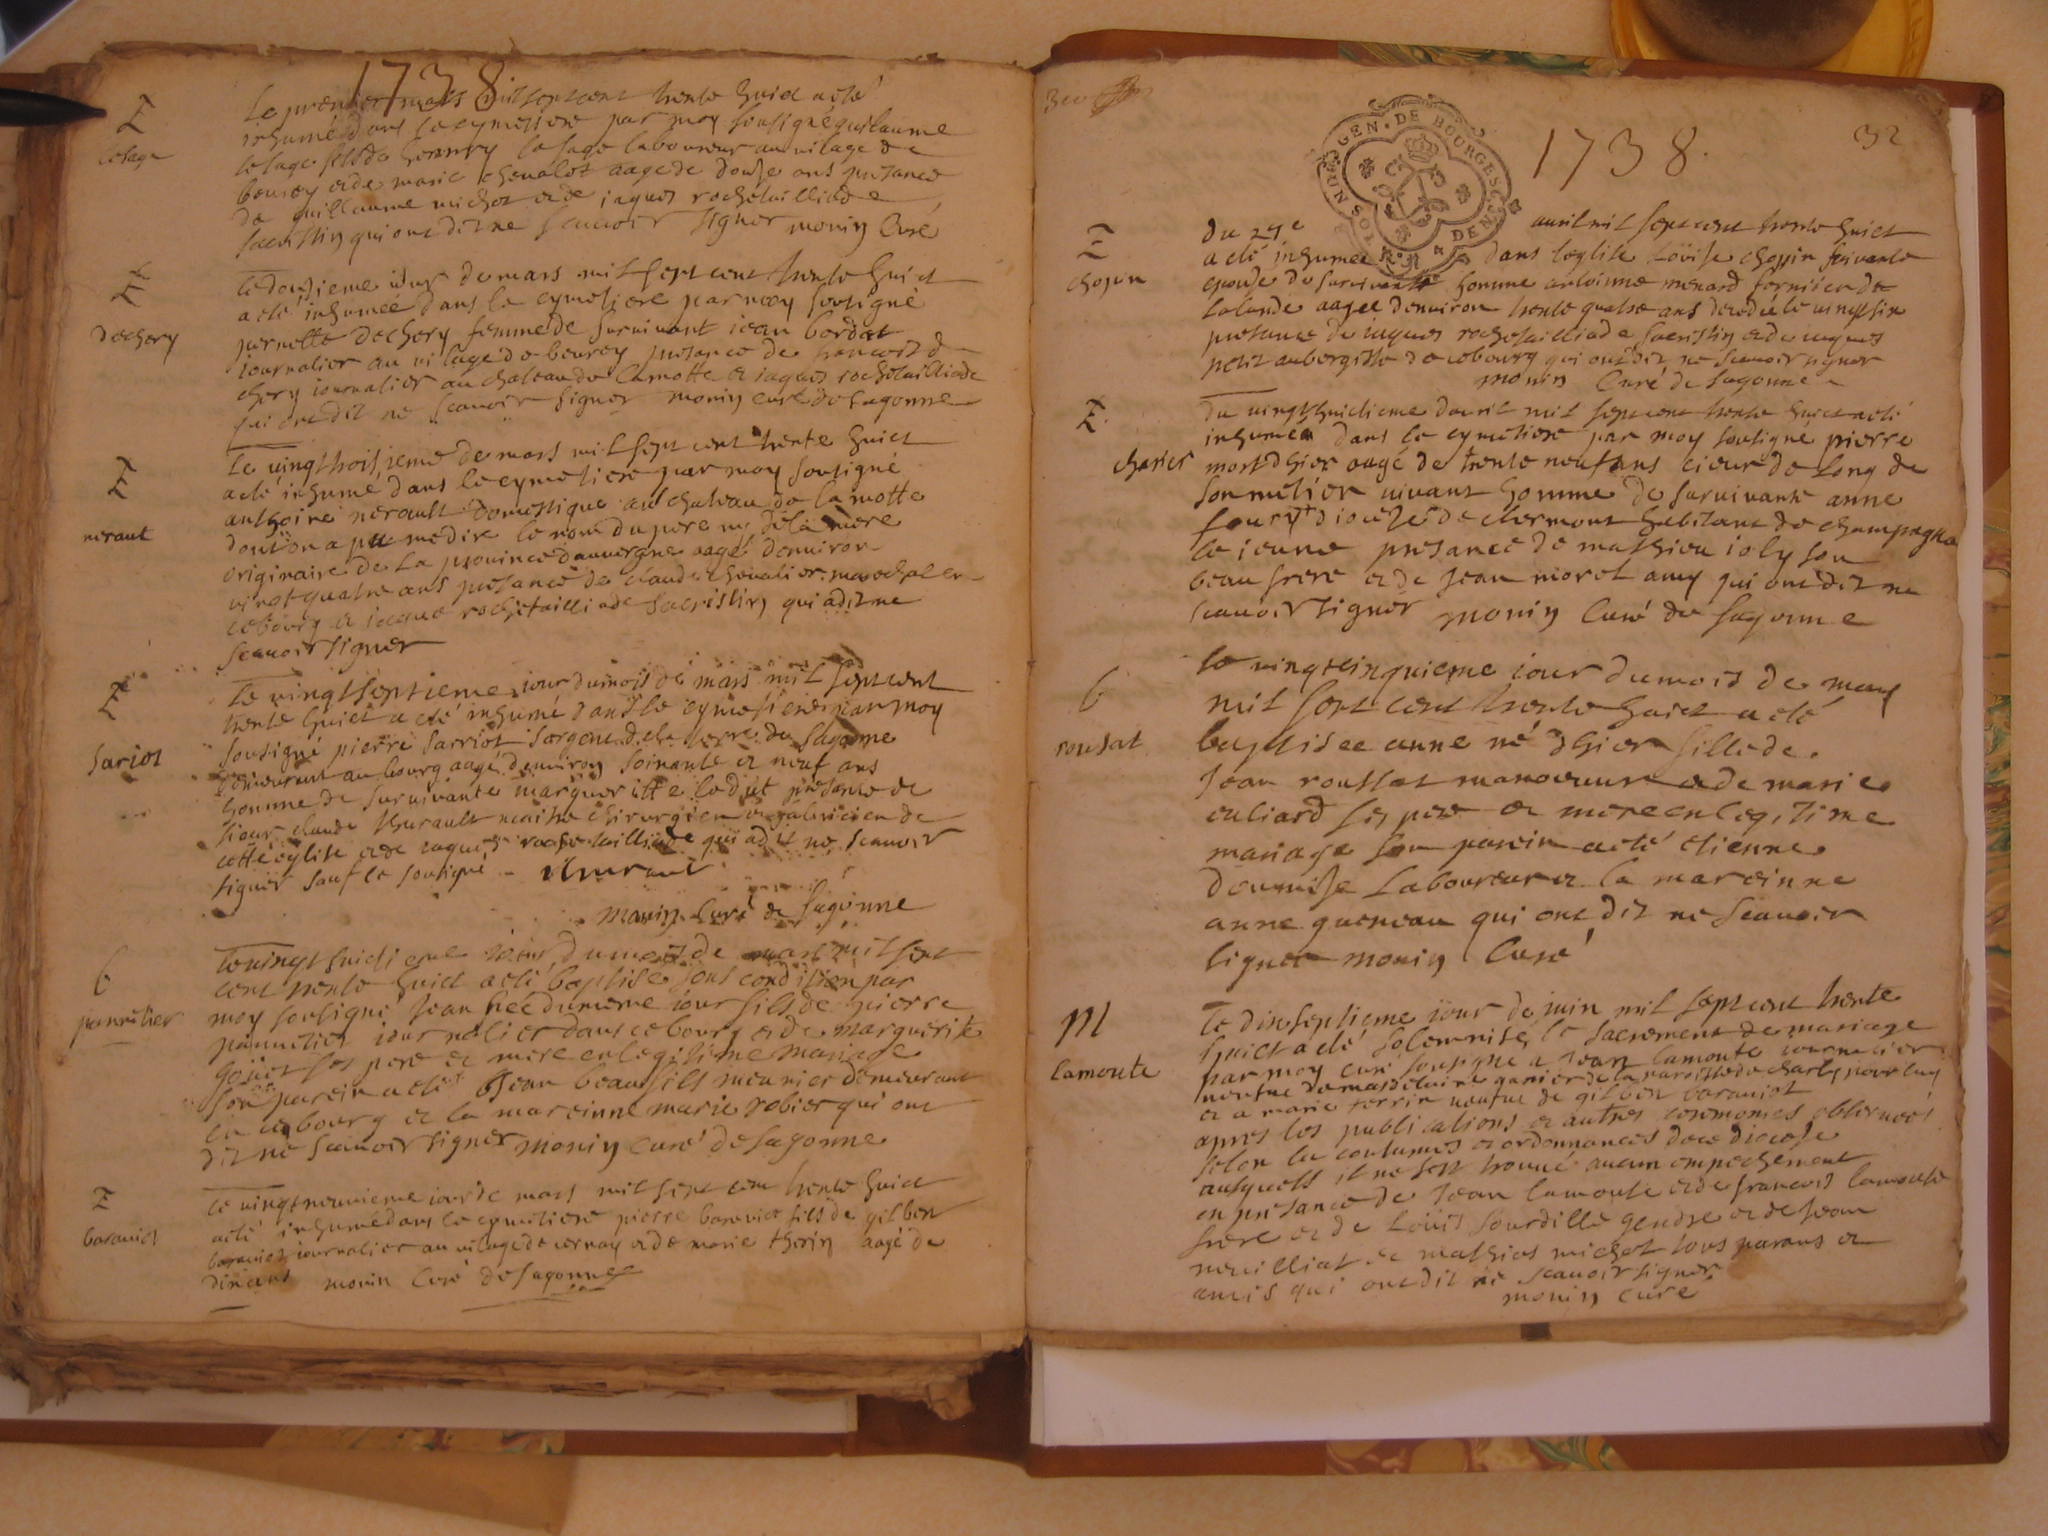 1738
E
lesage
le premier mars mil sept cent trente huict a eté
inhumé dans le cymetiere par moy sousigné guilaume
lesage fils de henry lesage laboureur au vilage de
bourey et de marie chevalot aagé de douse ans presance
de guillaume michot et de iaques rochetailliade
sacristin qui ont dit ne scauoir signer monin Curé
E
dechery
le dousieme iour de mars mil sept cent trente huict
a eté inhumée dans le cymetiere par moy sousigné
pernette dechery femme de survivant iean bordat
iournalier au vilage de bourey presance de francois de
chery iournalier au chateau de lamotte et iaques rochetailliade
qui ont dit ne scauoir signer monin curé de sagonne
E
neraut
le vingt troisieme de mars mil sept cent trente huict
a eté inhumé dans le cymetiere par moy sousigné
anthoine nerault domestique au chateau de lamotte
dont on a pu me dire le nom du pere ny de la mere
originaire de la prouince dauuergne aagé denuiron
vingt quatre ans presance de claude cheualier marechal en
ce bourg et iacque rochetailliade sacristin qui a dit ne
scauoir signer
E
sariot
le vingt septieme iour du mois de mars mil sept cent
trente huict a eté inhumé dans le cymetiere par moy
sousigné pierre sarriot sergent de la terre de sagonne
demeurant au bourg aagé denuiron soixante et neuf ans
homme de survivante margueritte lodut presance de
sieur claude thurault maitre chirurgien et fabricien de
cette eglise et de iaques rochetailliade qui a dit ne scauoir
signer sauf le sousigné thurault
monin Curé de sagonne
b
pannetier
le vingt huictieme iour du mois de mars mil sept
cent trente huict a eté baptisé sous condition par
moy sousigné Jean né du meme iour fils de pierre
pannetier iournalier dans ce bourg et de marguerite
gouet ses pere et mere en legitime mariage
son parein a eté Jean beaufils meunier demeurant
en ce bourg et la mareinne marie robier qui ont
dit ne scauoir signer monin curé de sagonne
E
barauiot
le vingt neuuieme iour de mars mil sept cent trente huict
a eté inhumé dans le cymetiere pierre barauiot fils de gilbert
barauiot iournalier au vilage de cernay et de marie therin aagé de
dix ans monin Curé de sagonne
32
1738
GEN. DE BOURGES
E
chopin
du 27e auril mil sept cent trente huict
a eté inhumée dans leglise Loüise chopin
epouse de survivant homme antoinne menard fermier de
lalande aagee denuiron trente quatre ans decedée le vingt six
presance de iaques rochetailliade sacristin et de iaques
petit aubergiste de ce bourg qui ont dit ne scauoir signer
monin Curé de sagonne
E
charier
du vingt huictieme dauril mil sept cent trente huict a eté
inhumé dans le cymetiere par moy sousigné pierre
mort dhier aagé de trente neuf ans cieur de long de
son métier vivant homme de survivante anne
diocese de clermont habitant de champagne
le ieune presance de mathieu ioly son
beau frere et de Jean moret amy qui ont dit ne
scauoir signer monin Curé de sagonne
b
rousat
le vingt cinquieme iour du mois de mars
mil sept cent trente huict a eté
baptisee anne né dhier fille de
Jean roussat manoeuure et de marie
culiard ses pere et mere en legitime
mariage son parein a eté etienne
laboureur et la mareinne
anne gueneau qui ont dit ne scauoir
signer monin Curé
M
lamoute
le dixseptieme iour de juin mil sept cent trente
huict a eté solemnisé le sacrement de mariage
par moy curé sousigné a Jean lamoute iournalier
neufue de magdelaine garnier de la paroisse de charly pour luy
et a marie terrin neufue de gilbert barauiot
apres les publications et autres ceremonies obseruées
selon les coutumes et ordonnances de ce diocese
ausquels il ne sest trouué aucun empechement
en presance de Jean lamoute et de francois lamoute
frere et de Loüis sourdille gendre et de Jean
neuilliat et mathieu michot tous parans et
amis qui ont dit ne scauoir signer
monin Curé